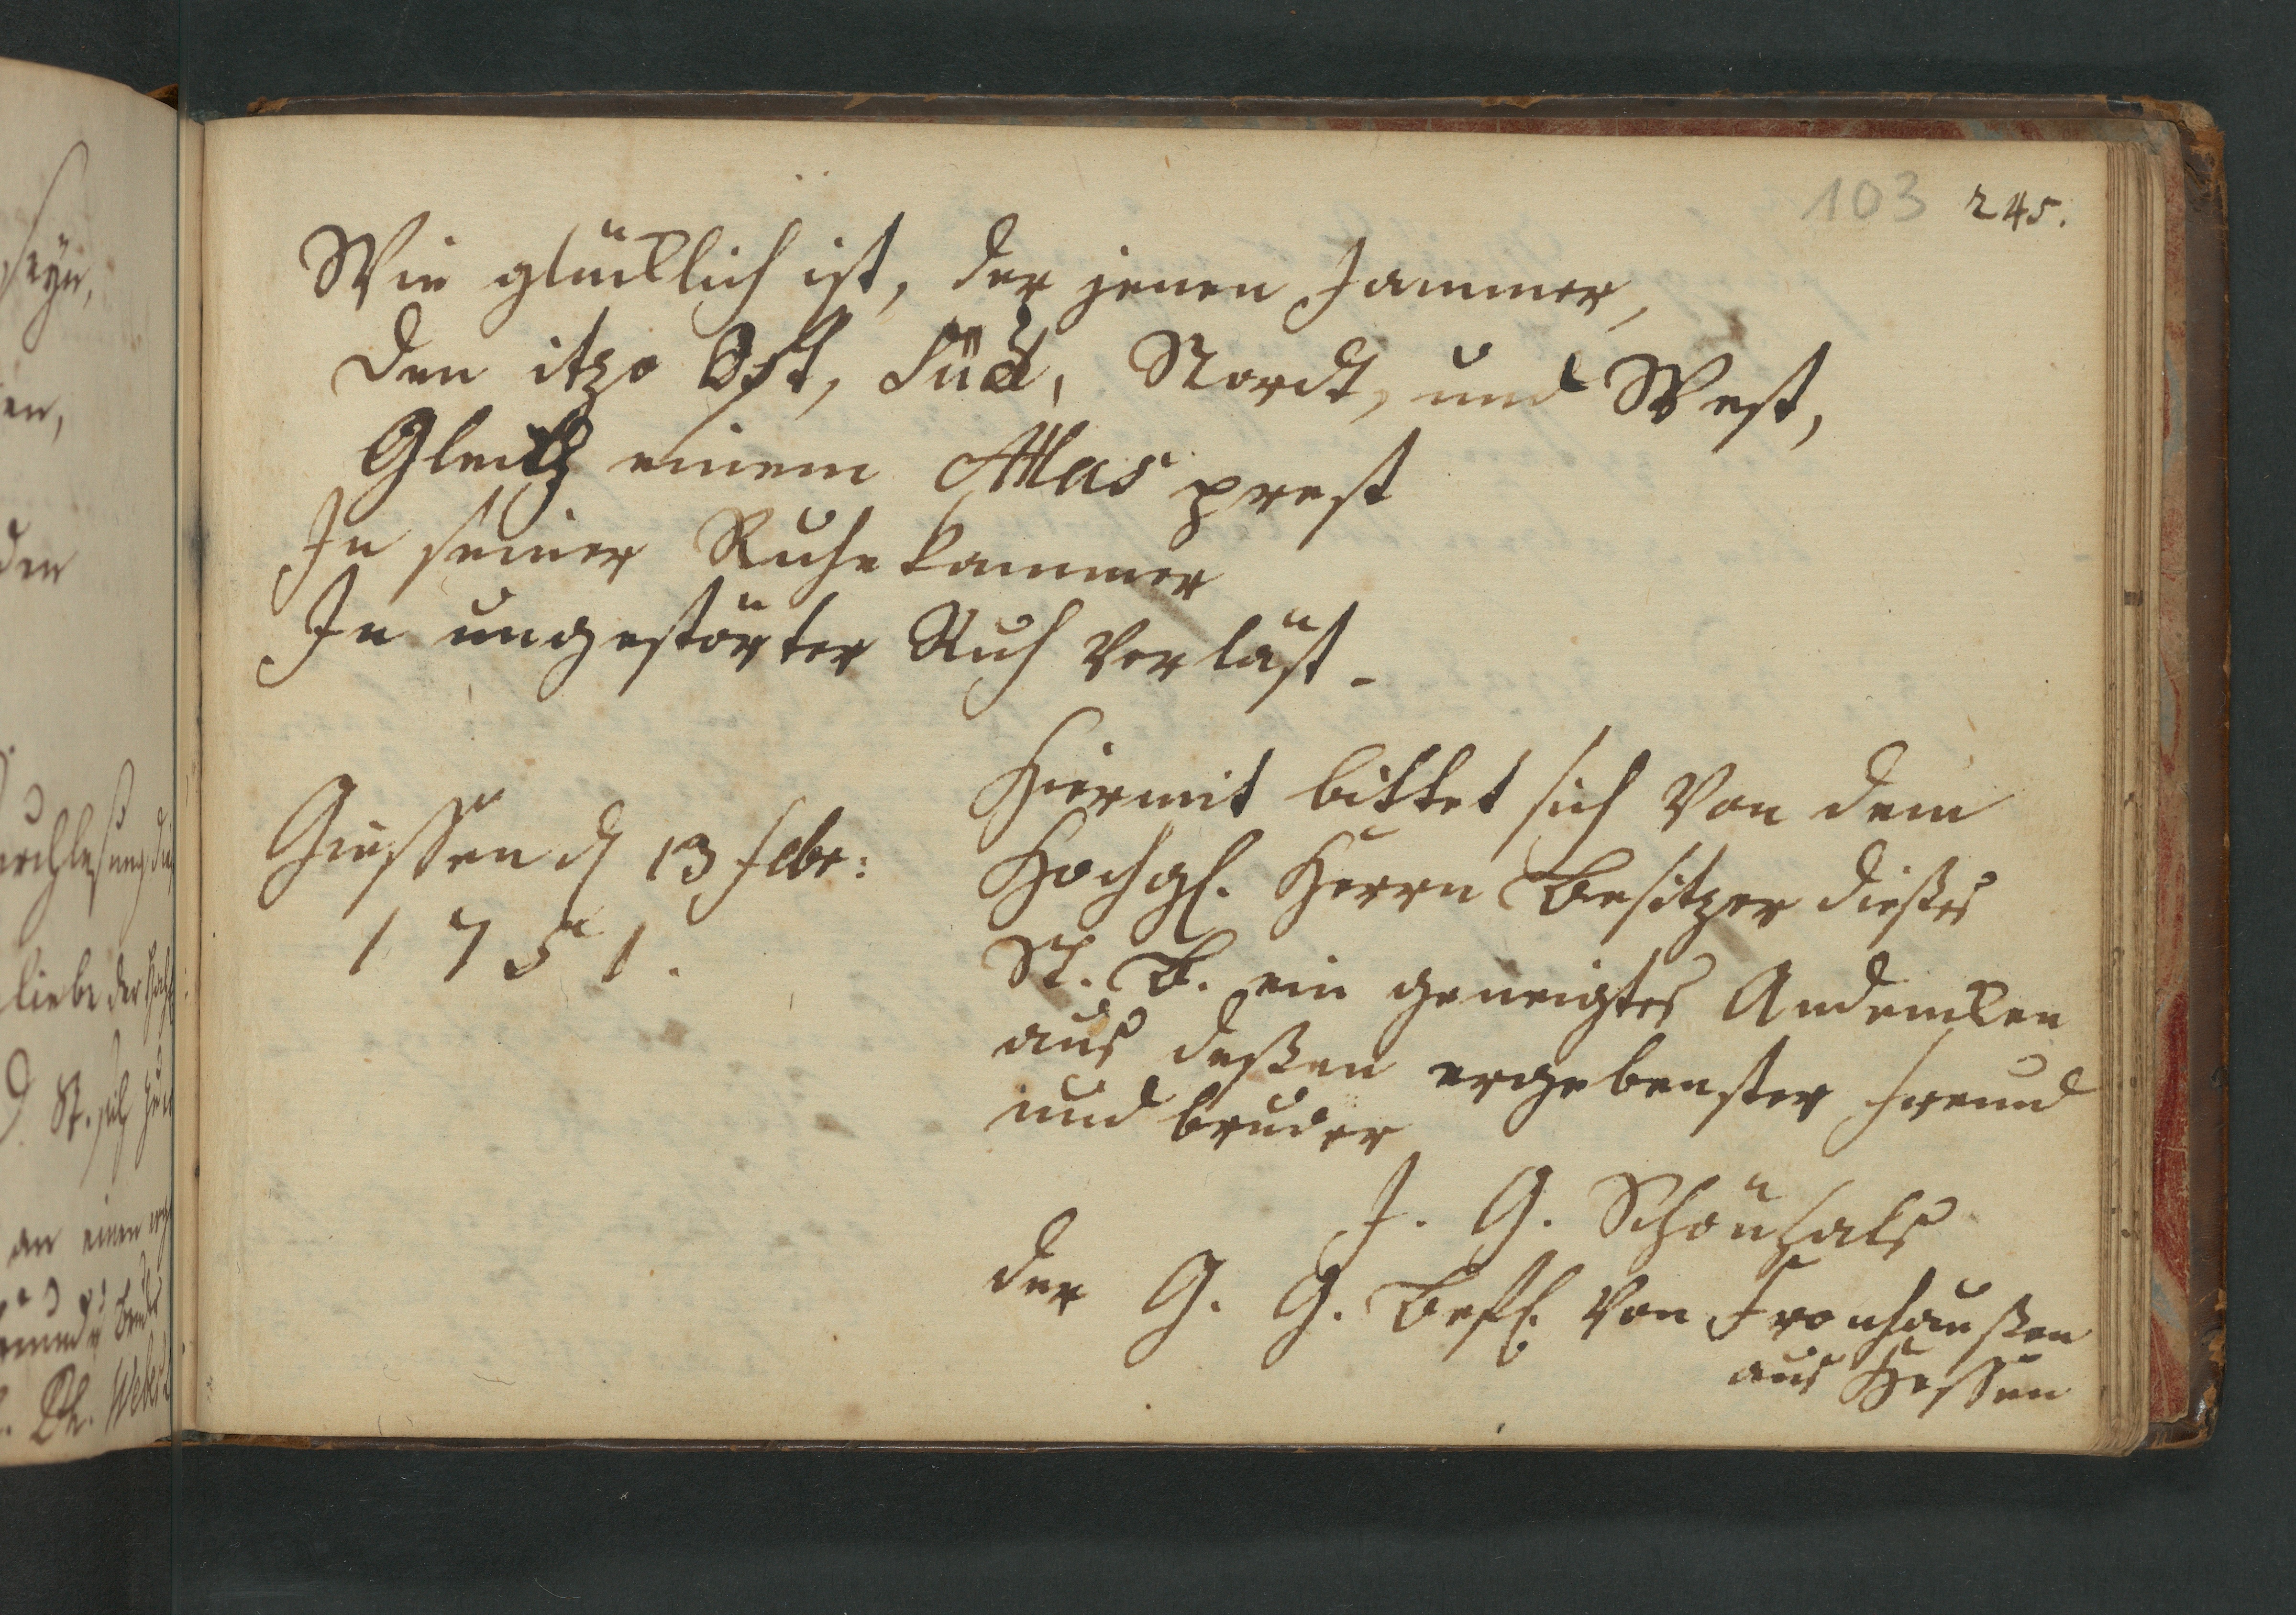 103 245.
Wie glücklich ist, der jenen Jammer,
Den itzo Ost, Süd, Nordt, und West,
Gleich einem Atlas prest
In seiner Ruhekammer
In ungestörter Ruh verläst.
Giessen d 13 febr:
1751.
Hiermit bittet sich von dem
Hochgl. Herrn Besitzer dießes
St. B. ein geneigtes Andencken
aus deßen ergebenster freund
und bruder
J. G. Schönhals
der G. G. Befl. von Fronhaußen
aus Hessen
seyn,
en,
den
liebe der
St. sich
an einen